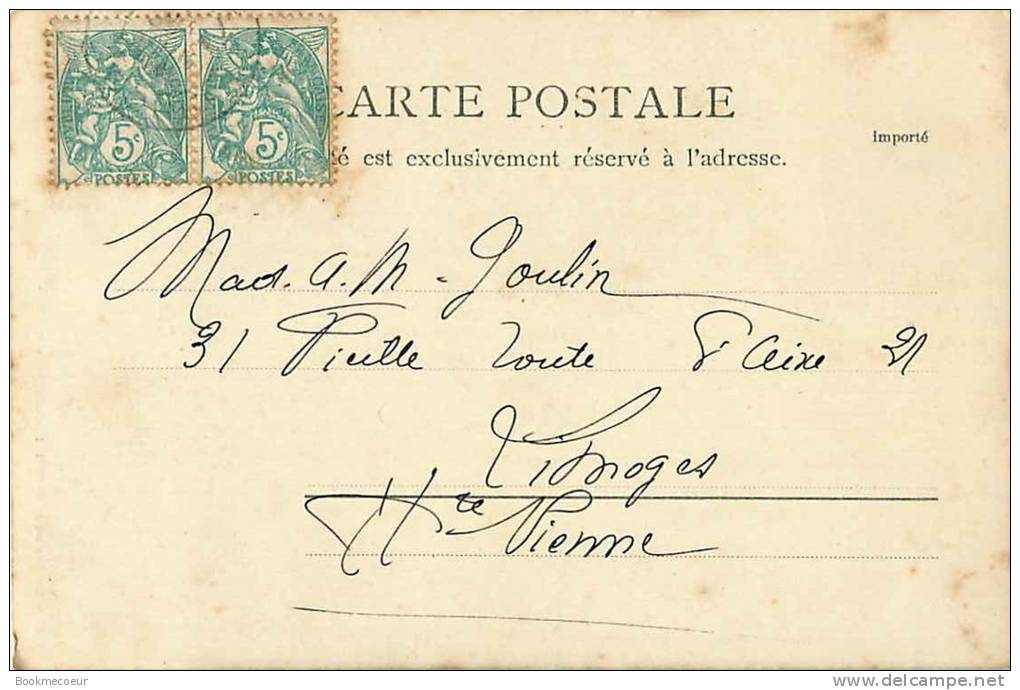 CARTE POSTALE
importé
é est exclusivement réservé à l'adresse.
5c 5c
POSTES POSTES
Mad. A. M. Goulin
31 Vieille route d'Aixe 31
Limoges
Hte Vienne
Bookmecoeur
www.delcampe.net